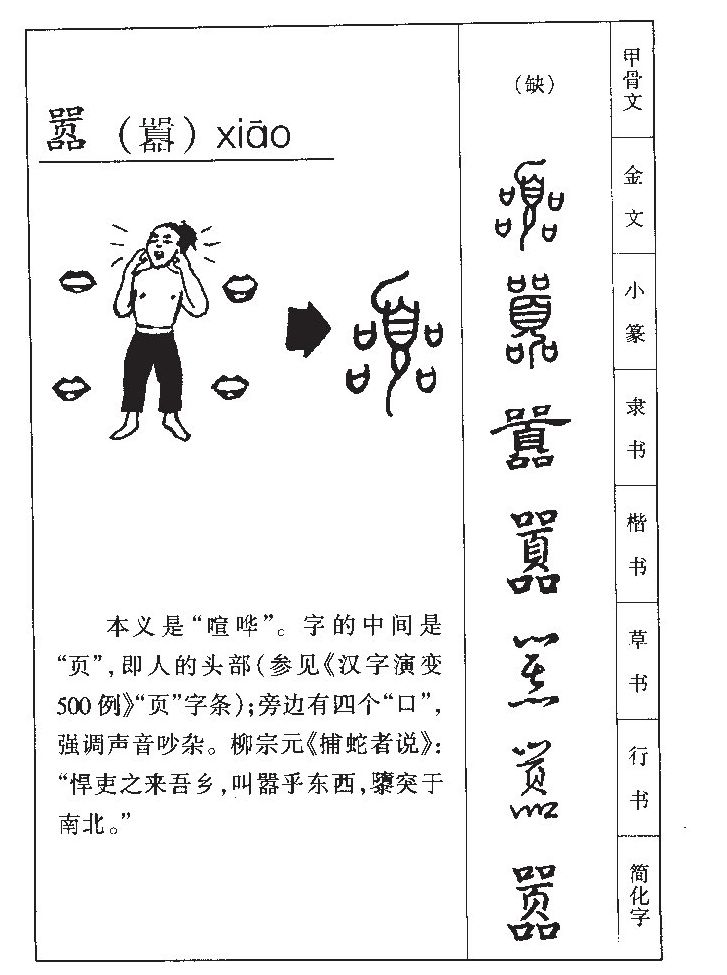 嚣（囂）xiāo
本义是“喧哗”。字的中间是
“页”，即人的头部（参见《汉字演变
500例》“页”字条）；旁边有四个“口”，
强调声音吵杂。柳宗元《辅蛇者说》：
“悍吏之来吾乡，叫嚣乎东西，隳突于
南北。”
（缺）
甲骨文
囂
金文
囂
小篆
囂
隶书
囂
楷书
嚣
草书
嚣
行书
嚣
简化字